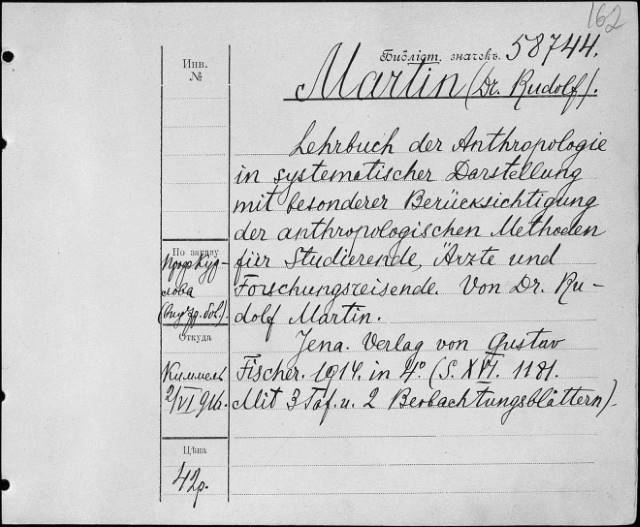 162
Библіот. значекъ. 58744.
Инв.
№
Martin (Dr. Rudolf).
Lehrbuch der Anthropologie
in systematischer Darstellung
mit besonderer Berücksichtigung
der anthropologischen Methoden
für Studierende, Ärzte und
Forschungsreisende. Von Dr. Ru-
dolf Martin.
Jena. Verlag von Gustav
Fischer. 1914. in 4° (S. XVI. 1181.
Mit 3 Taf. u. 2 Beobachtungsblättern).
По
проф. Кур-
лова
Откуда
Киммель
2/VI 916.
Цѣна
42р.